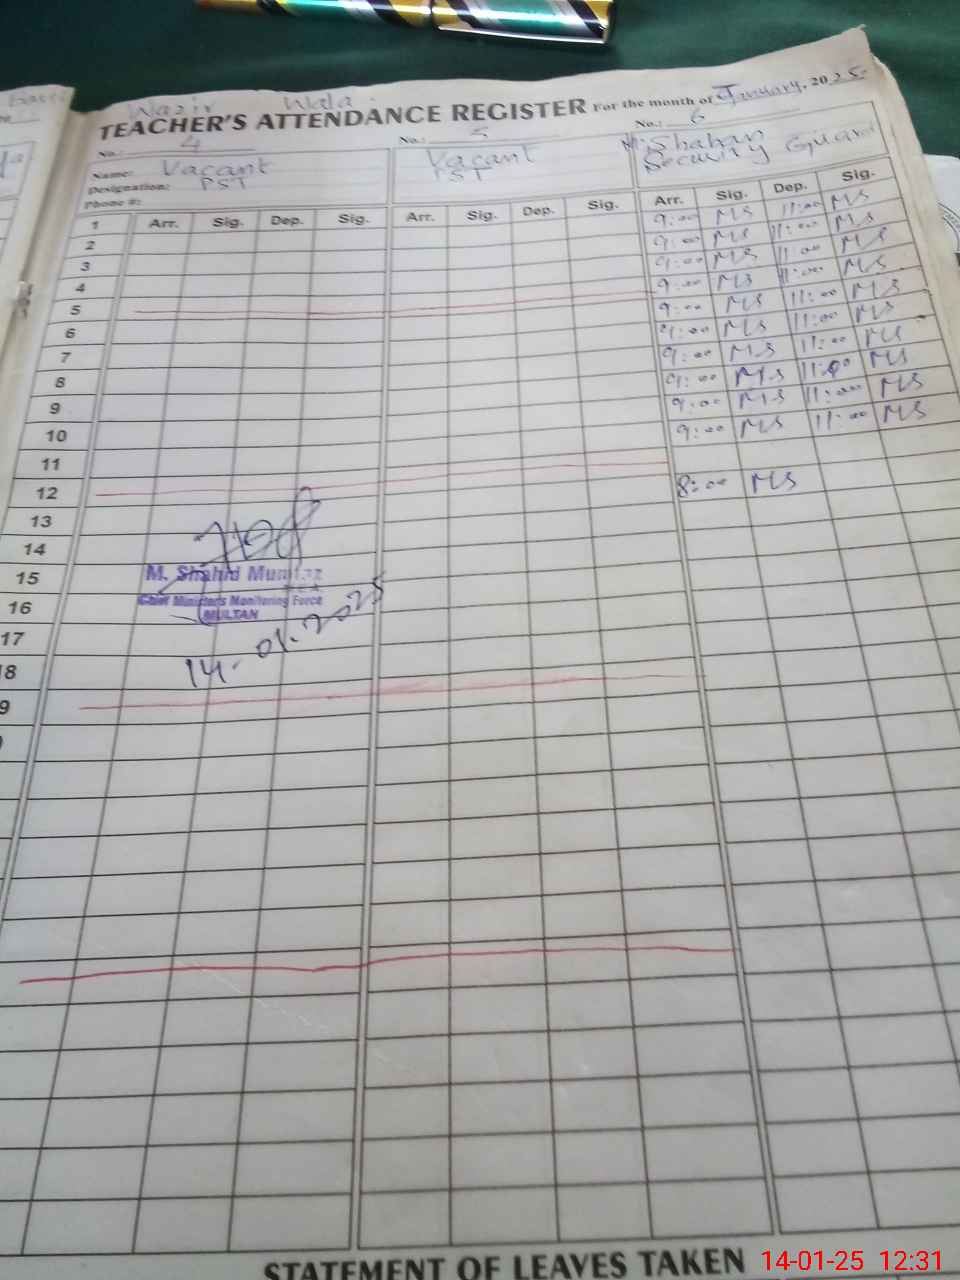 Wazir Wala
TEACHER'S ATTENDANCE REGISTER For the month of January, 2025.
No.: 4 No.: 5 No.: 6
Name: Vacant Vacant M. Shaban
Designation: PST PST Security Guard
Phone #:
Arr. Sig. Dep. Sig. Arr. Sig. Dep. Sig. Arr. Sig. Dep. Sig.
1 9:00 MS 11:00 MS
2 9:00 MS 11:00 MS
3 9:00 MS 11:00 MS
4 9:00 MS 11:00 MS
5 9:00 MS 11:00 MS
6 9:00 MS 11:00 MS
7 9:00 MS 11:00 MS
8 9:00 MS 11:00 MS
9 9:00 MS 11:00 MS
10 9:00 MS 11:00 MS
11
12 8:00 MS
13
14
15
M. Shahid Mumtaz
16
Chief Minister's Monitoring Force
MULTAN
17
14-01-2025
18
9
STATEMENT OF LEAVES TAKEN
14-01-25 12:31